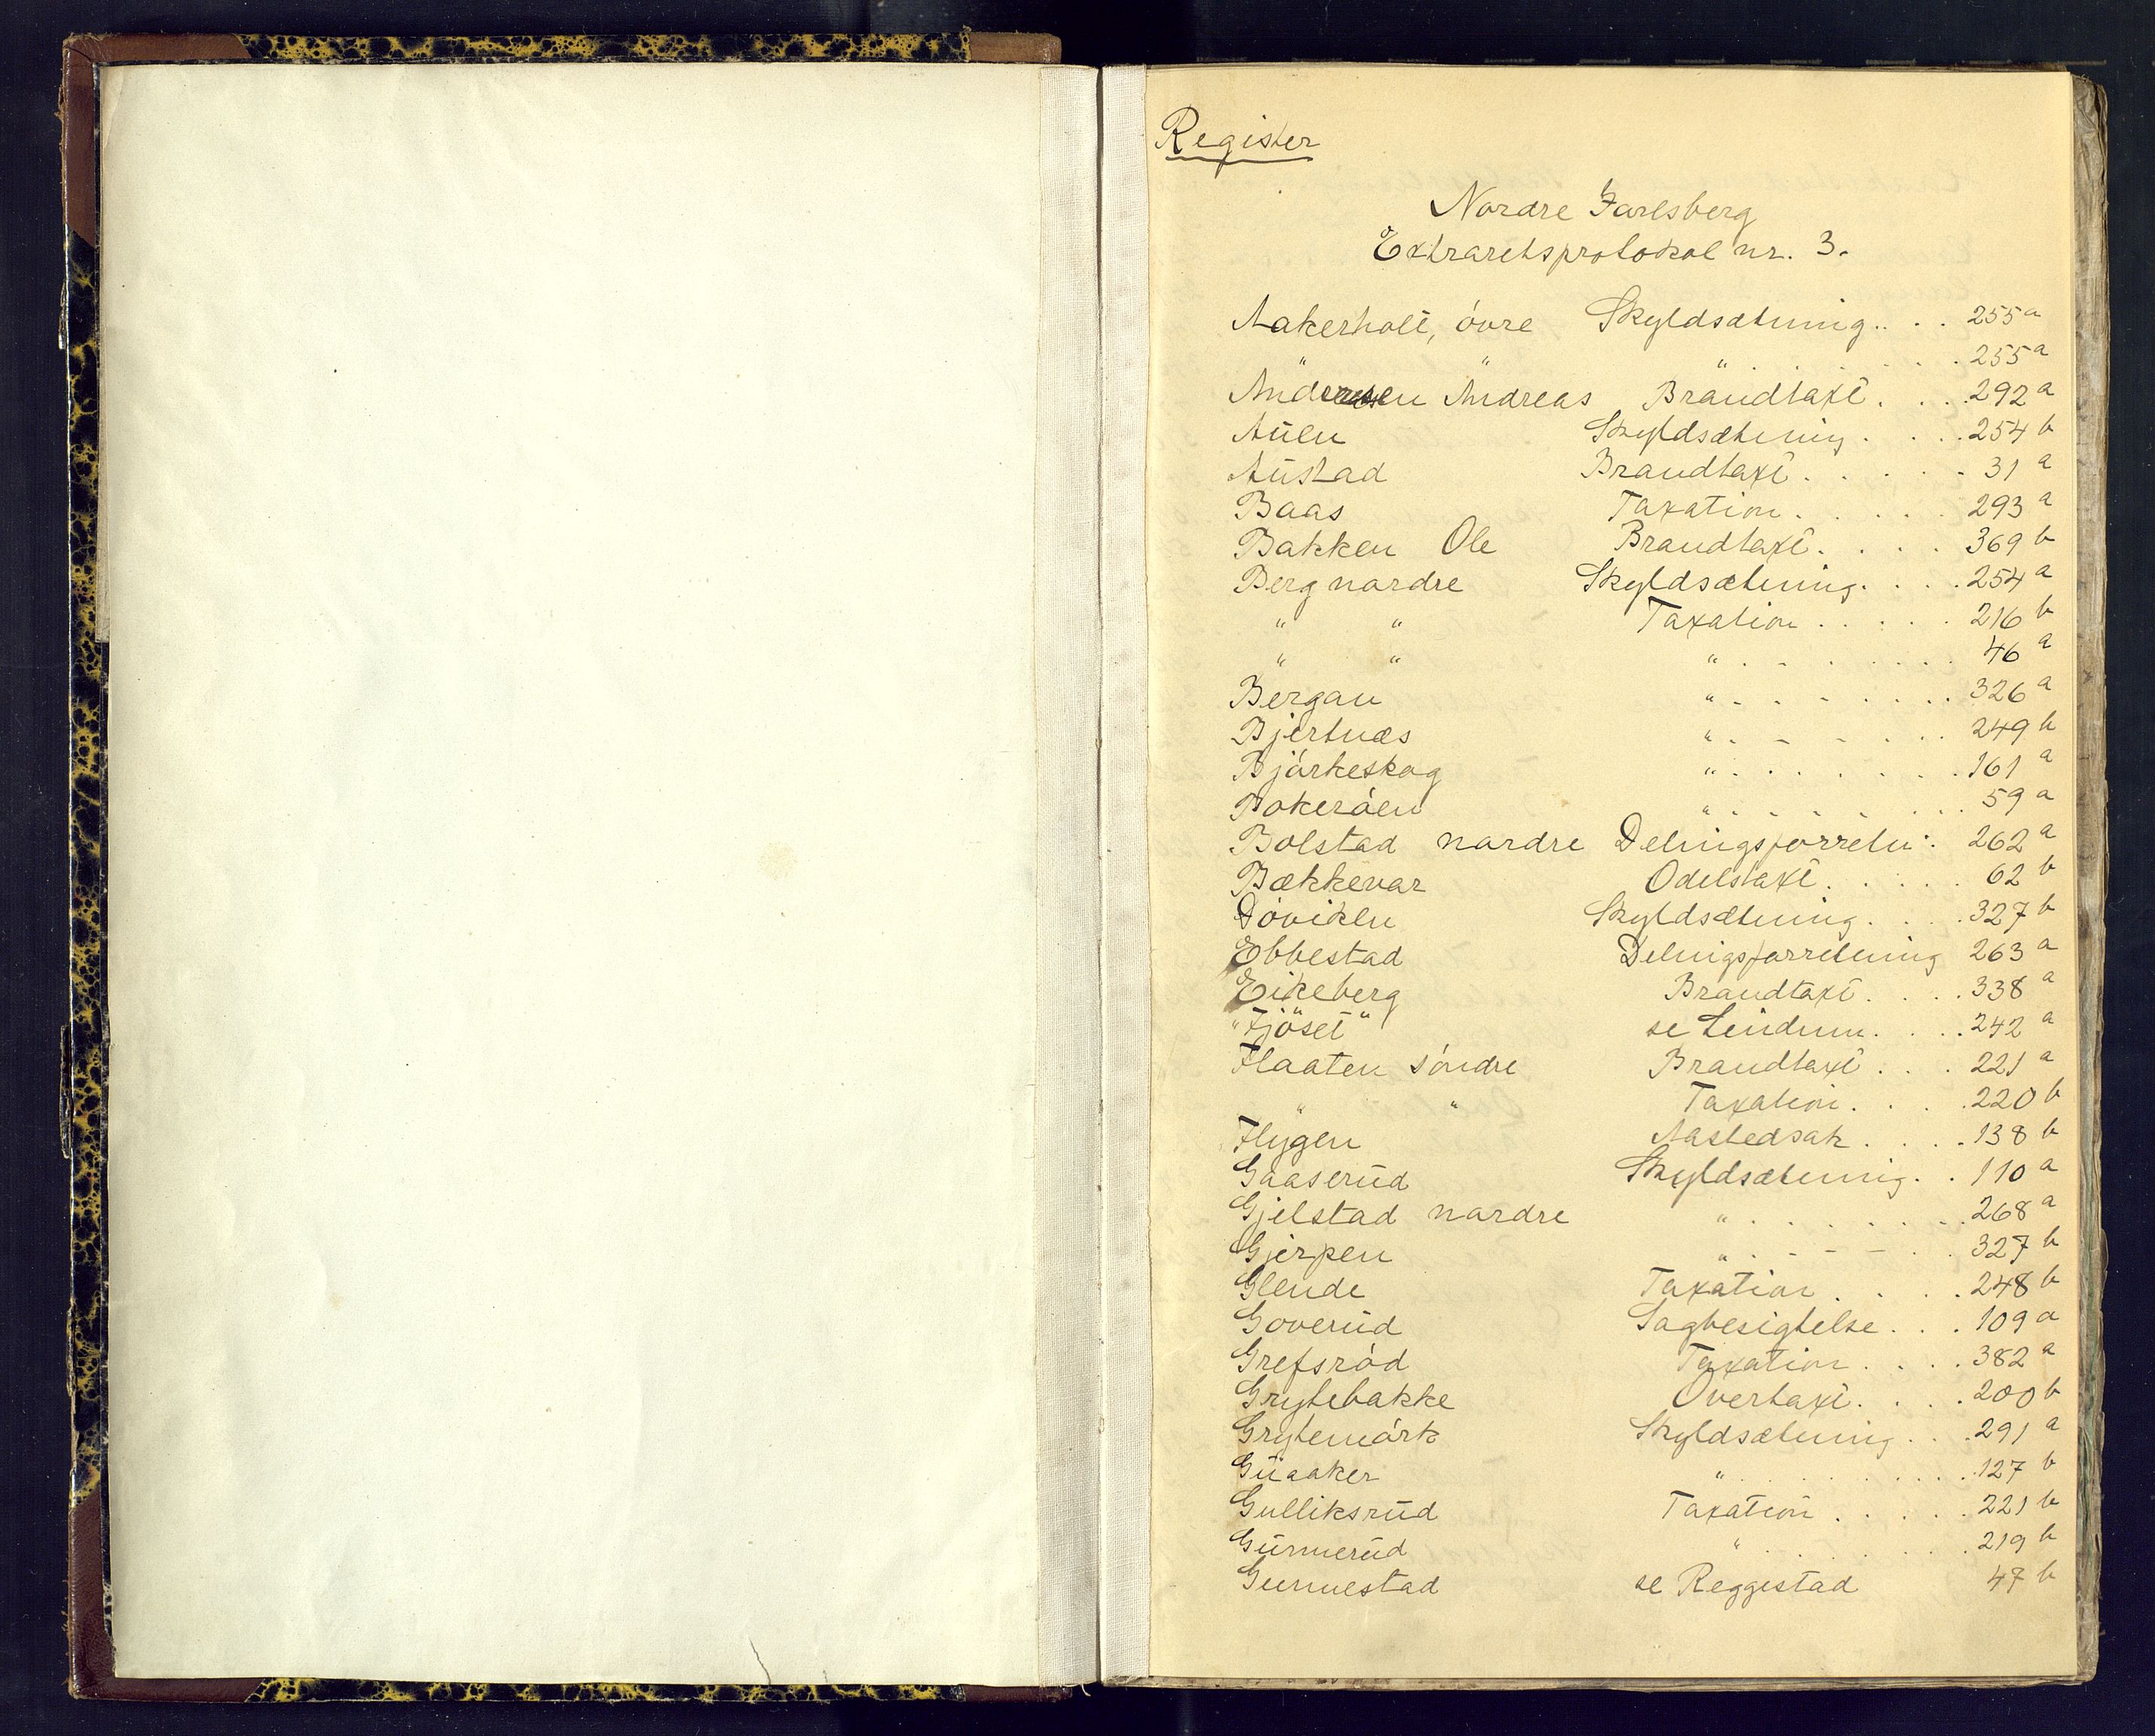 Register
Nordre Jarlsberg
Extraretsprotokol nr. 3.
Aakerholt, övre Skyldsætning . . . . 255a
" " " . . . . 255a
Andersen Andreas Brandtaxt . . . . 292a
Aulen Skyldsætning . . . . 254b
Austad Brandtaxt . . . . . 31a
Baas Taxation . . . . . 293a
Bakken Ole Brandtaxt . . . . 369b
Berg nordre Skyldsætning . . . . 254a
" " Taxation . . . . . 216b
" " " . . . . . . . 46a
Bergan " . . . . . . . 326a
Bjertnæs " . . . . . . . 249b
Bjørkeskog " . . . . . . . 161a
Bokerøen " . . . . . . . 59a
Bolstad nordre Delingsforretn: 262a
Bækkevar Odelstaxt . . . . . 62b
Døviken Skyldsætning . . . . 327b
Ebbestad Delingsforretning 263a
Eikeberg Brandtaxt . . . . 338a
"Fjöset" se Lindum . . . . 242a
Flaaten söndre Brandtaxt . . . 221a
" " Taxation . . . . 220b
Flygen Aastedsak . . . . 138b
Gaaserud Skyldsætning . . 110a
Gjelstad nordre " . . . . . . . 268a
Gjerpen " . . . . . . 327b
Glende Taxation . . . . 248b
Goverud Sagbesigtelse . . . 109a
Grefsrød Taxation . . . . 382a
Grytebakke Overtaxt . . . . 200b
Grytemørk Skyldsætning . . . 291a
Guaaker " . . . . . . . . 127b
Gulliksrud Taxation . . . . . 221b
Gunnerud " . . . . . . . 219b
Gunnestad se Reggestad 47b